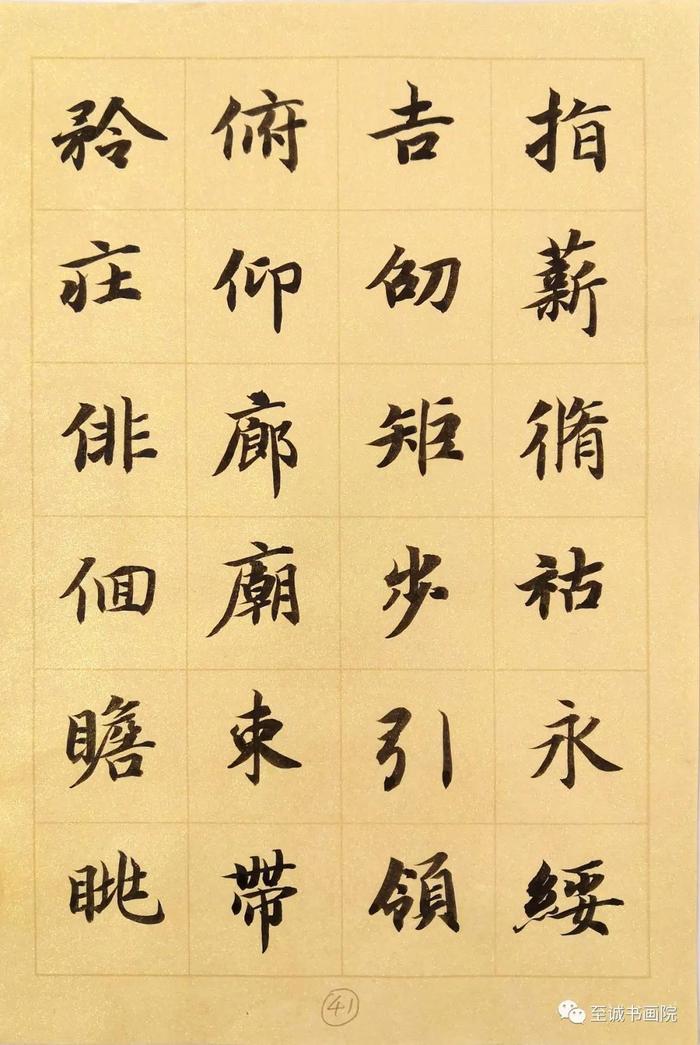 指薪脩祜永綏
吉劭矩步引領
俯仰廊廟束帶
矜莊俳佪瞻眺
41
至诚书画院